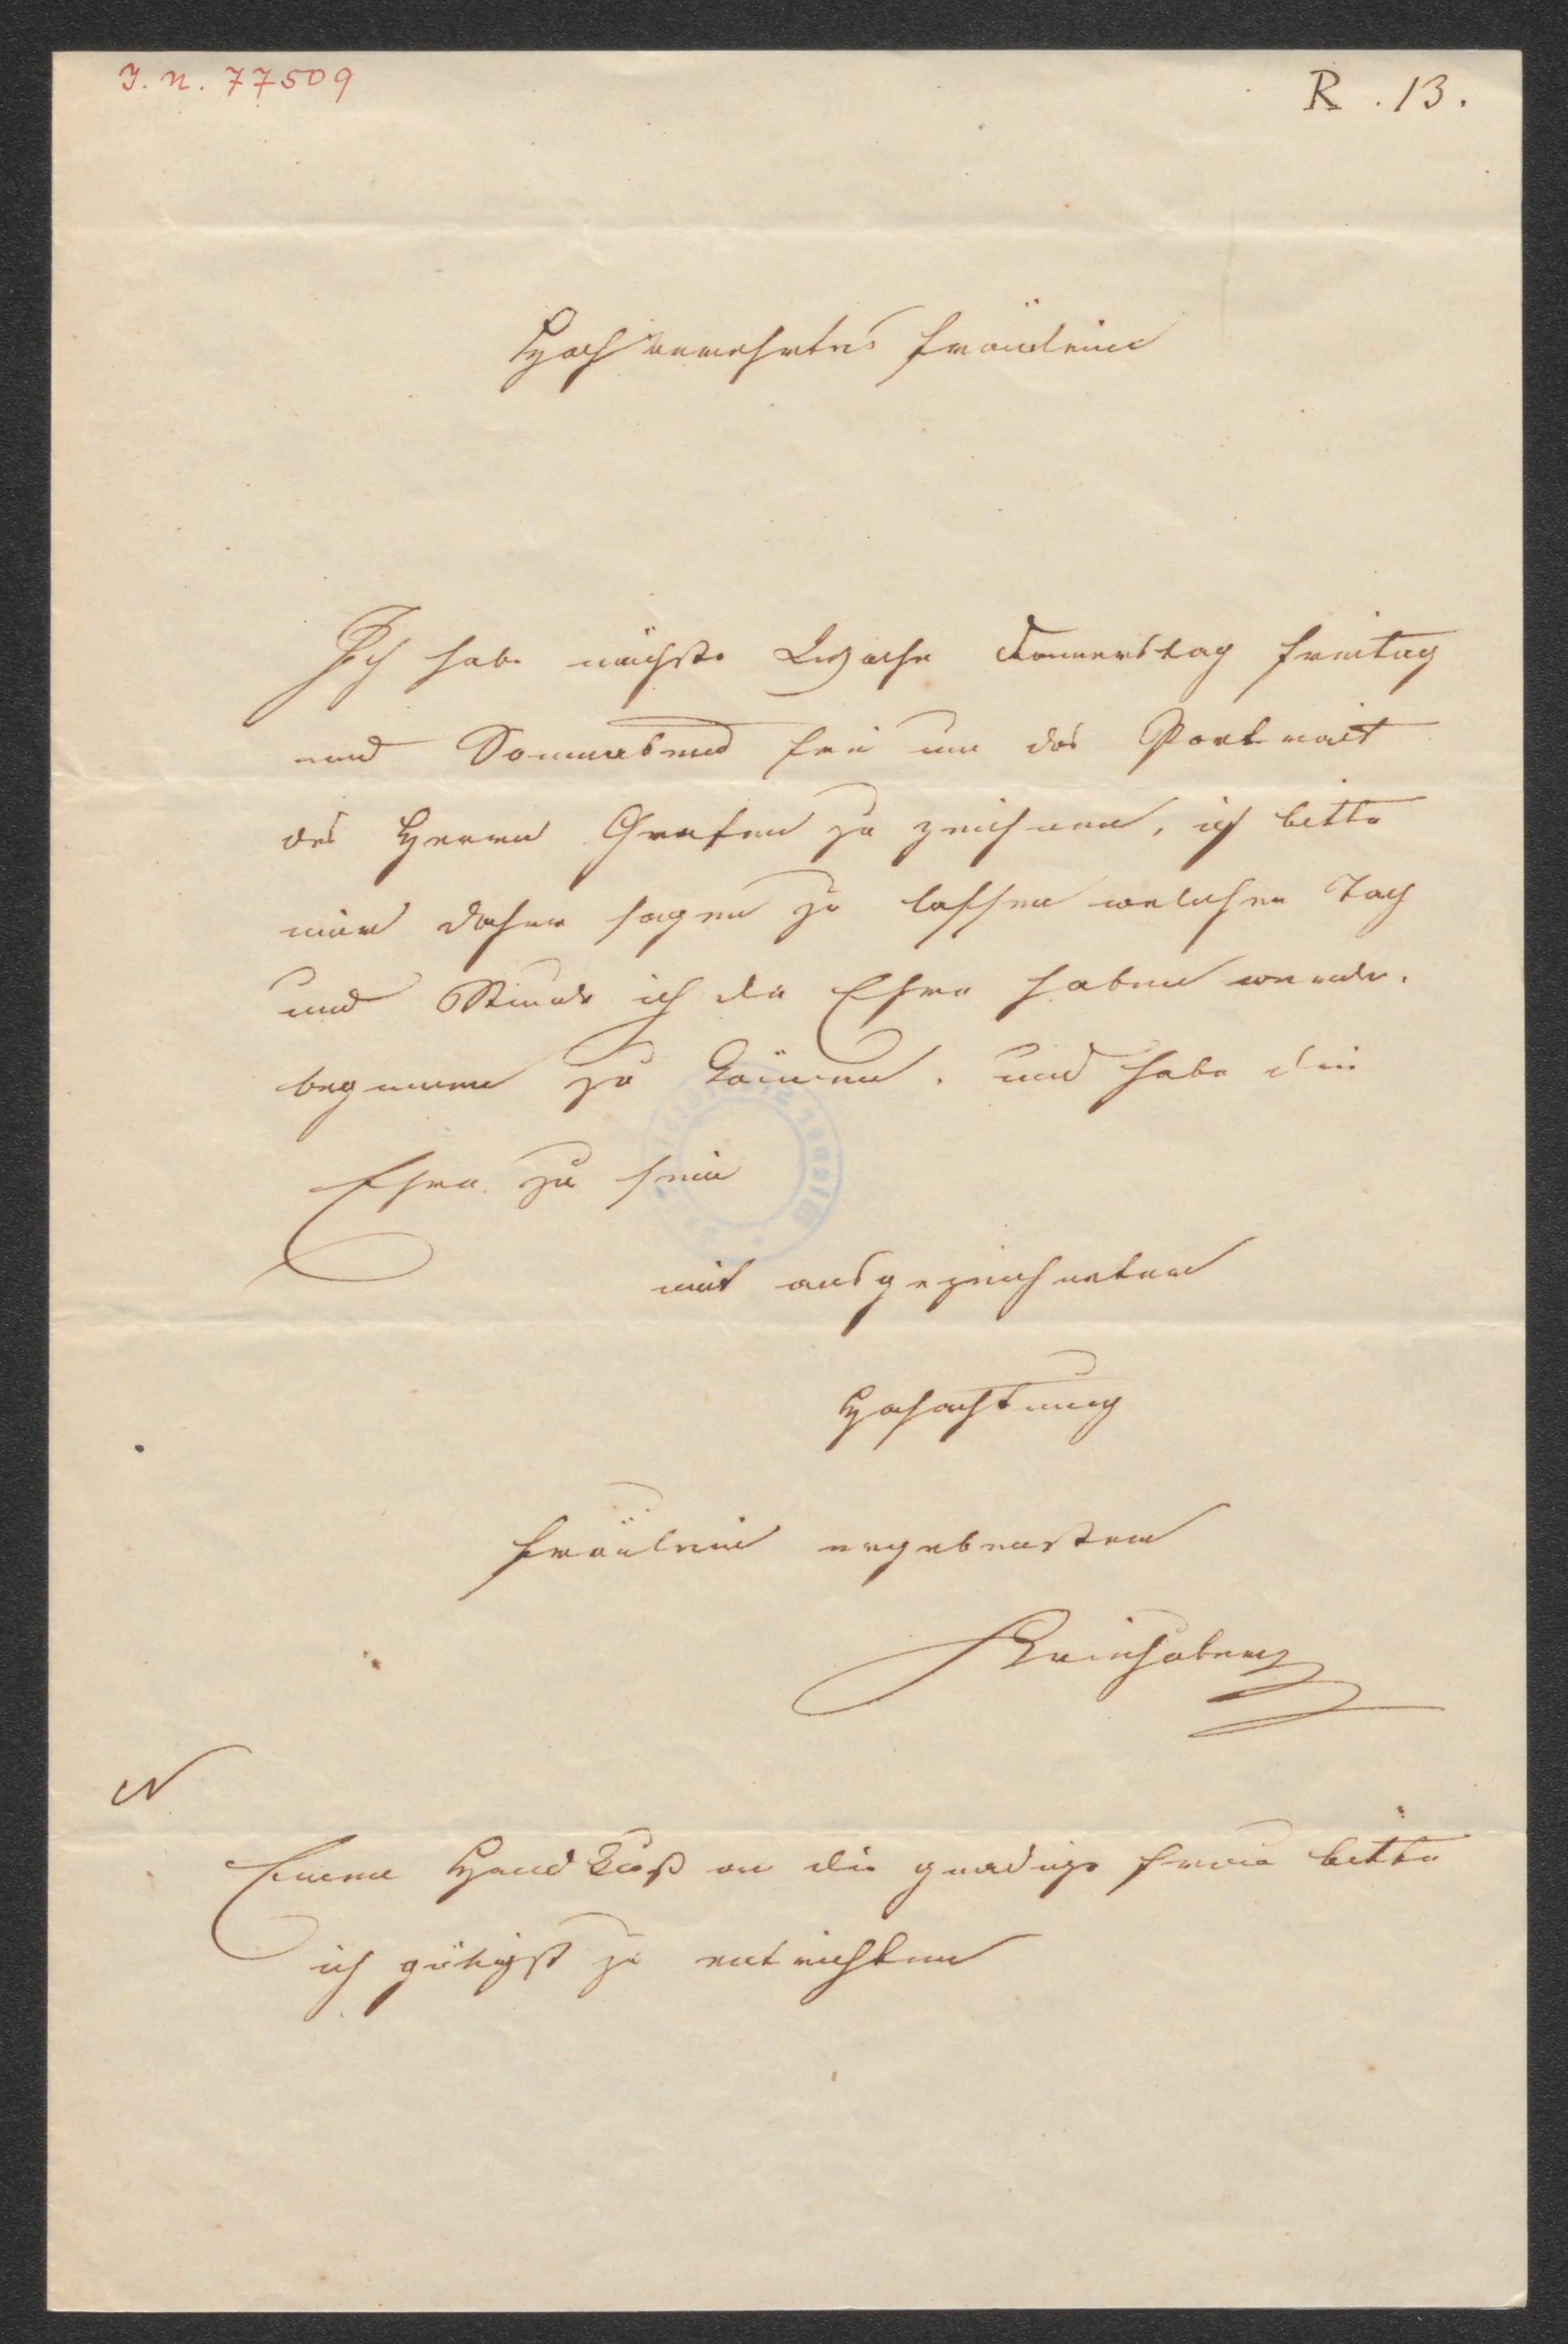 I. N. 77509
R. 13.
Hochverehrtes Fräulein
Ich habe nächste Woche Donnerstag Freitag
und Sonnabend frei um das Portrait
des Herrn Grafen zu zeichnen, ich bitte
mir daher sagen zu lassen welchen Tag
und Stunde ich die Ehre haben werde.
beginnen zu können. und habe die
Ehre zu sein
mit ausgezeichneter
Hochachtung
Fräulein ergebenster
Kriehuber
Einen Handkuß an die gnädige Frau bitte
ich gütigst zu entrichten